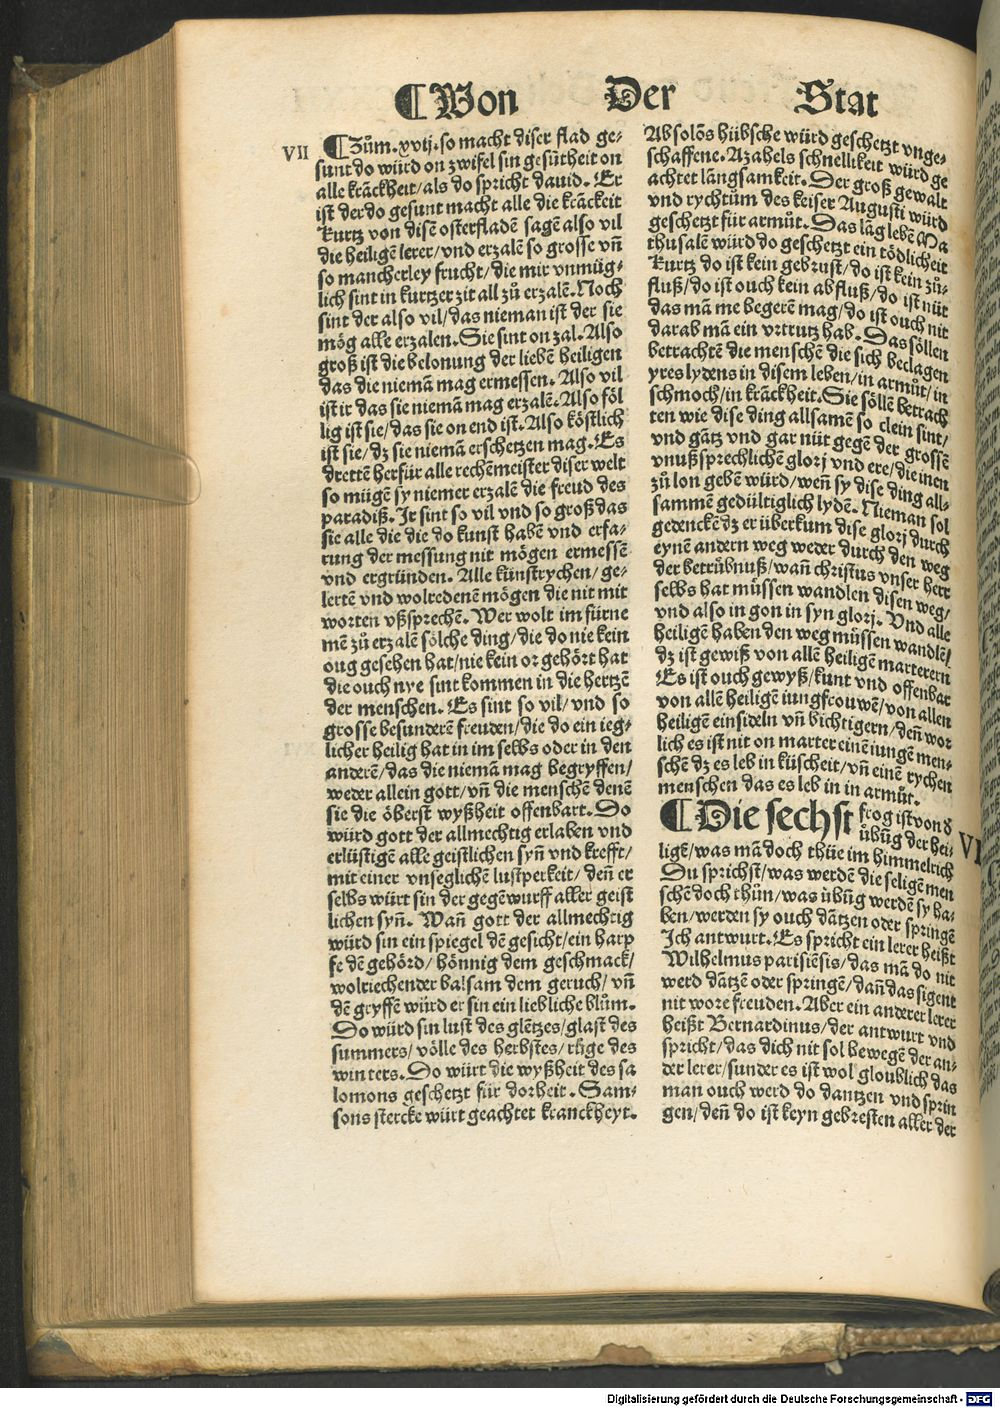 ¶Von Der Stat
VII
¶Zům.xvij.so macht diser flad ge⸗
sunt do würd on zwifel sin gesūtheit on
alle krāckheit/als do spricht dauid. Er
ist der do gesunt macht alle die krāckeit
Kurtz von disē osterfladē sagē also vil
die heiligē lerer/vnd erzalē so grosse vn̄
so mancherley frucht/die mir vnmüg⸗
lich sint in kurtzer zit all zů erzalē.Noch
sint der also vil/das nieman ist der sie
mög alle erzalen.Sie sint on zal.Also
groß ist die belonung der liebē heiligen
das die niemā mag ermessen.Also vil
ist ir das sie niemā mag erzalē.Also föl
lig ist sie/das sie on end ist.Also köstlich
ist sie/dz sie niemā erschetzen mag.Es
drettē herfür alle rechēmeister diser welt
so mügē sy niemer erzalē die freud des
paradiß.Ir sint so vil vnd so groß das
sie alle die die do kunst habē vnd erfa⸗
rung der messung nit mögen ermessē
vnd ergründen.Alle künstrychen/ge⸗
lertē vnd wolredenē mögen die nit mit
worten vßsprechē.Wer wolt im fürne
mē zů erzalē sölche ding/die do nie kein
oug gesehen hat/nie kein or gehört hat
die ouch nye sint kommen in die hertzē
der menschen.Es sint so vil/vnd so
grosse besunderē freuden/die do ein ieg⸗
licher heilig hat in im selbs oder in den
anderē/das die niemā mag begryffen/
weder allein gott/vn̄ die menschē denē
sie die öberst wyßheit offenbart.So
würd gott der allmechtig erlaben vnd
erlüstigē alle geistlichen syn̄ vnd krefft/
mit einer vnseglichē lustperkeit/den̄ er
selbs würt sin der gegēwurff aller geist
lichen syn̄.Wan̄ gott der allmechtig
würd sin ein spiegel dē gesicht/ein harp
fe dē gehörd/hönnig dem geschmack/
wolriechender balsam dem geruch/vn̄
dē gryffē würd er sin ein liebliche blům.
Do würd sin lust des glētzes/glast des
summers/völle des herbstes/růge des
winters.Do würt die wyßheit des sa
lomons geschetzt für dorheit.Sam⸗
sons stercke würt geachtet kranckheyt.
Absolōs hübsche würd geschetzt vnge⸗
schaffene.Azahels schnellikeit würd ge
achtet langsamkeit.Der groß gewalt
vnd rychtům des keiser Augusti würd
geschetzt für armůt.Das lāg lebē Ma
thusalē würd do geschetzt ein tödlicheit
Kurtz do ist kein gebrust/do ist kein zů⸗
fluß/do ist ouch kein abfluß/do ist nüt
das mā me begerē mag/do ist ouch nit
darab mā ein vrtrutz hab.Das söllen
betrachtē die menschē die sich beclagen
yres lydens in disem leben/in armůt/in
schmoch/in krāckheit.Sie söllē betrach
ten wie dise ding allsamē so clein sint/
vnd gātz vnd gar nüt gegē der grossē
vnußsprechlichē glorj vnd ere/die inen
zů lon gebē würd/wen̄ sy dise ding all⸗
sammē gedültiglich lydē.Nieman sol
gedenckē dz er überkum dise glorj durch
eynē andern weg weder durch den weg
der betrůbnuß/wan̄ christus vnser herr
selbs hat müssen wandlen disen weg/
vnd also in gon in syn glorj.Vnd alle
heiligē haben den weg müssen wandlē/
dz ist gewiß von allē heiligē marterern
Es ist ouch gewyß/kunt vnd offenbar
von allē heiligē iungfrouwē/von allen
heiligē einsideln vn̄ bichtigern/den̄ wor
lich es ist nit on marter einē iungē men⸗
schē dz es leb in küscheit/vn̄ einē rychen
menschen das es leb in in armůt.
¶Die sechst frog ist von d
VI
übūg der hei⸗
ligē/was mā doch thüe im himmelrich
Du sprichst/was werdē die seligē men
schē doch thůn/was übūg werdē sy ha⸗
ben/werden sy ouch dātzen oder springē
Ich antwurt.Es spricht ein lerer heißt
Wilhelmus parisiēsis/das mā do nit
werd dātzē oder springē/dan̄ das sigent
nit wore freuden.Aber ein anderer lerer
heißt Bernardinus/der antwurt vnd
spricht/das dich nit sol bewegē der an⸗
der lerer/sunder es ist wol gloublich das
man ouch werd do dantzen vnd sprin
gen/den̄ do ist keyn gebresten aller der
Digitalisierung gefördert durch die Deutsche Forschungsgemeinschaft - DFG